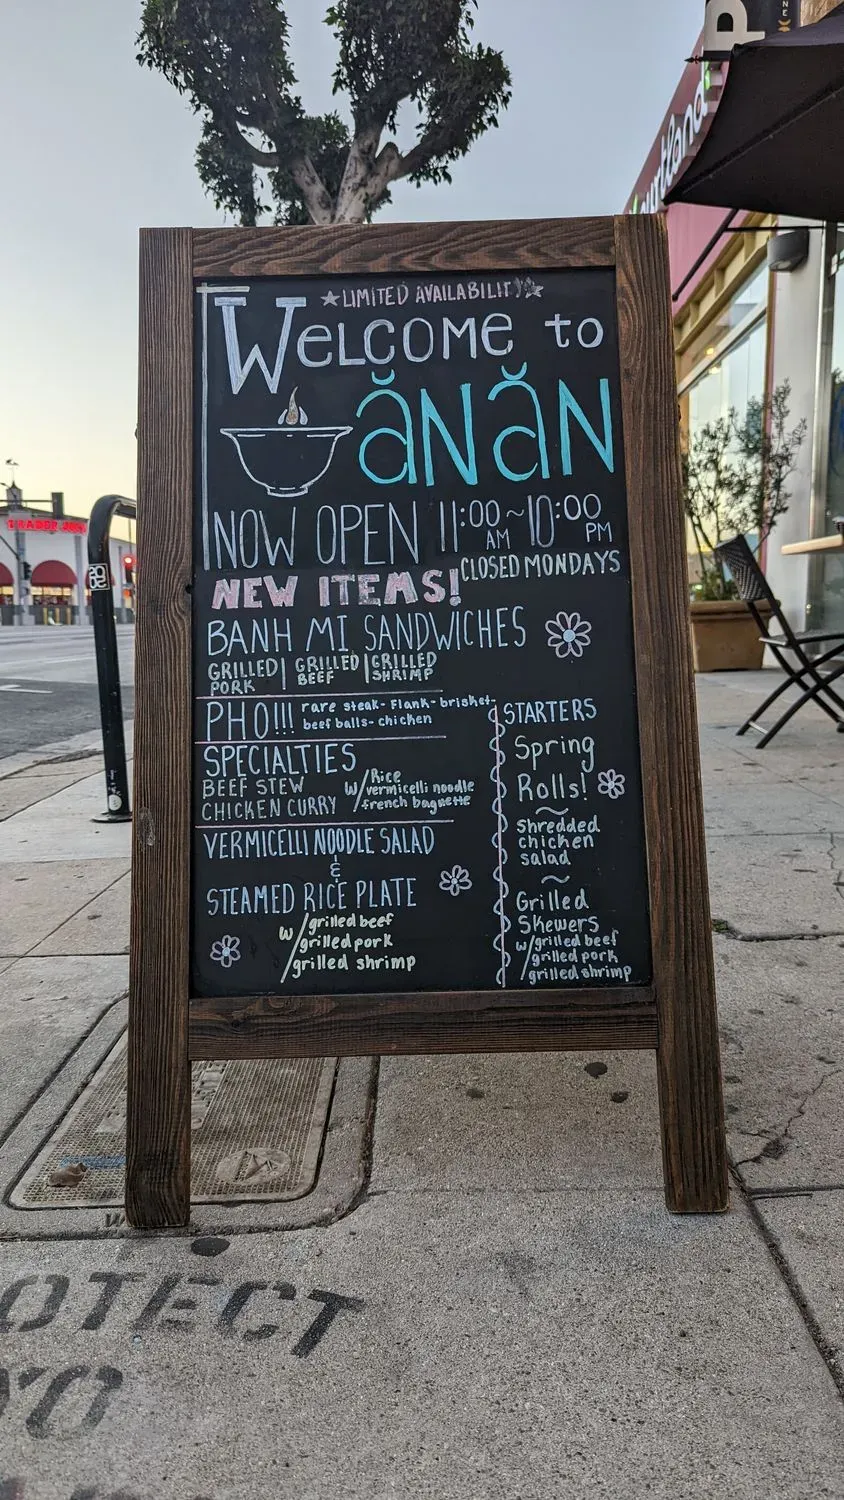 ★LIMITED AVAILABILITY★
WELCOME to
ănăn
NOW OPEN 11:00 AM ~ 10:00 PM
CLOSED MONDAYS
NEW ITEMS!
BANH MI SANDWICHES
GRILLED PORK | GRILLED BEEF | GRILLED SHRIMP
PHO!!! rare steak- Flank- brisket-
beef balls- chicken
SPECIALTIES
BEEF STEW
CHICKEN CURRY
w/ Rice
vermicelli noodle
french baguette
VERMICELLI NOODLE SALAD
&
STEAMED RICE PLATE
w/ grilled beef
grilled pork
grilled shrimp
STARTERS
Spring
Rolls!
~
Shredded
chicken
salad
~
Grilled
Skewers
w/ grilled beef
grilled pork
grilled shrimp
TRADER JOE'S
P
OTECT